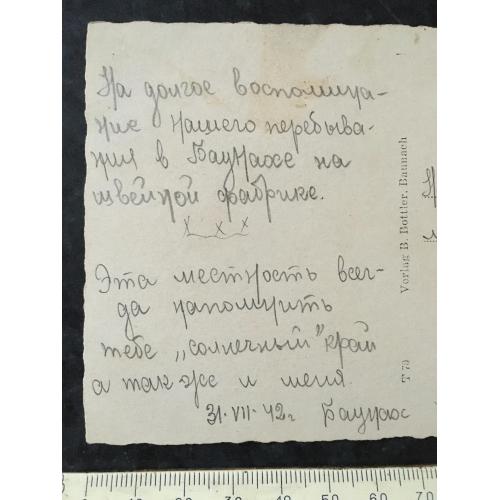 На долгое воспомина-
ние нашего пребыва-
ния в Баунахе на
швейной фабрике.
х х х
Эта местность всег-
да напомнить
тебе „солнечный" край
а так же и меня.
31. VII. 42 г Баунах
Verlag B. Bottler, Baunach
T 73
0 10 20 30 40 50 60 70